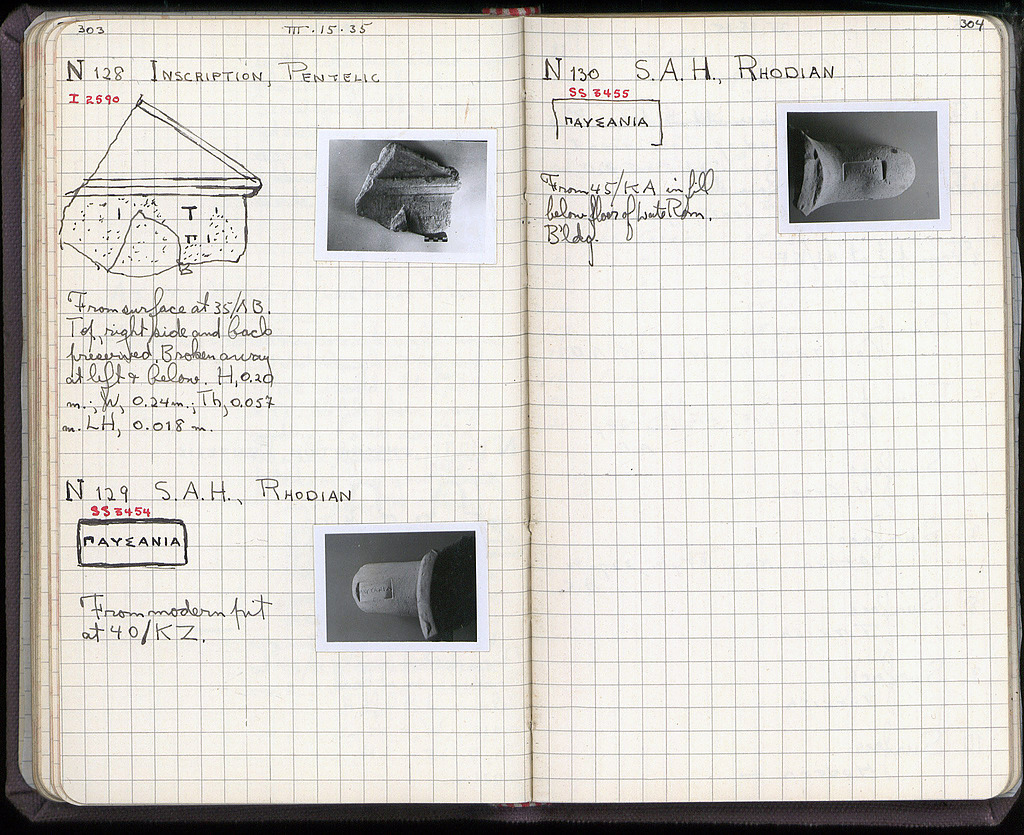 303
III·15·35
N 128 INSCRIPTION, PENTELIC
I 2590
From surface at 35/ΛB.
Top, right side and back
preserved. Broken away
at left & below. H, 0.20
m.; W, 0.24 m.; Th, 0.057
m. LH, 0.018 m.
N 129 S.A.H., RHODIAN
SS 3454
ΠΑΥΣΑΝΙΑ
From modern pit
at 40/KZ.
304
N 130 S.A.H., RHODIAN
SS 3455
ΠΑΥΣΑΝΙΑ
From 45/KA in fill
below floor of late Rom.
B'ldg.